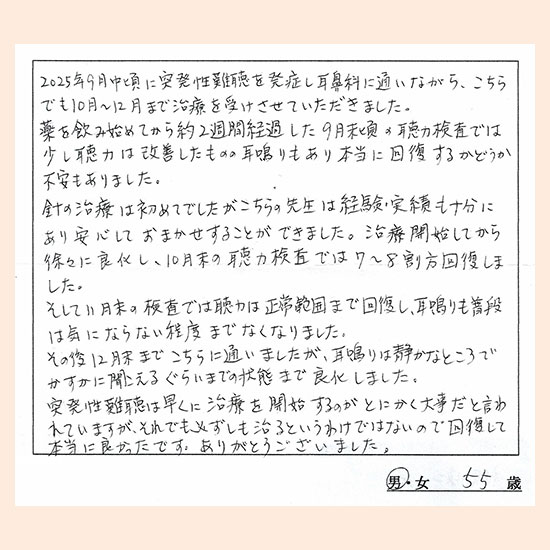 2025年9月中頃に突発性難聴を発症し耳鼻科に通いながら、こちら
でも10月~12月まで治療を受けさせていただきました。
薬を飲み始めてから約2週間経過した9月末頃の聴力検査では
少し聴力は改善したものの耳鳴りもあり本当に回復するかどうか
不安もありました。
針の治療は初めてでしたがこちらの先生は経験・実績も十分に
あり安心しておまかせすることができました。治療開始してから
徐々に良化し、10月末の聴力検査では7~8割方回復しま
した。
そして11月末の検査では聴力は正常範囲まで回復し、耳鳴りも普段
は気にならない程度までなくなりました。
その後12月末までこちらに通いましたが、耳鳴りは静かなところで
かすかに聞こえるぐらいまでの状態まで良化しました。
突発性難聴は早くに治療を開始するのがとにかく大事だと言わ
れていますが、それでも必ずしも治るというわけではないので回復して
本当に良かったです。ありがとうございました。
男・女 55 歳